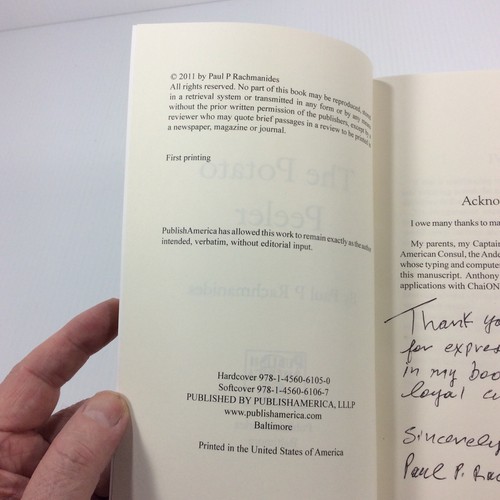 © 2011 by Paul P Rachmanides
All rights reserved. No part of this book may be reproduced, stored
in a retrieval system or transmitted in any form or by any means
without the prior written permission of the publishers, except by a
reviewer who may quote brief passages in a review to be printed in
a newspaper, magazine or journal.
First printing
PublishAmerica has allowed this work to remain exactly as the author
intended, verbatim, without editorial input.
Hardcover 978-1-4560-6105-0
Softcover 978-1-4560-6106-7
PUBLISHED BY PUBLISHAMERICA, LLLP
www.publishamerica.com
Baltimore
Printed in the United States of America
Ackno
I owe many thanks to ma
My parents, my Captain
American Consul, the Ande
whose typing and compute
this manuscript. Anthony
applications with ChaiON
Thank yo
for expres
in my boo
loyal cu
Sincerely
Paul P. Rac